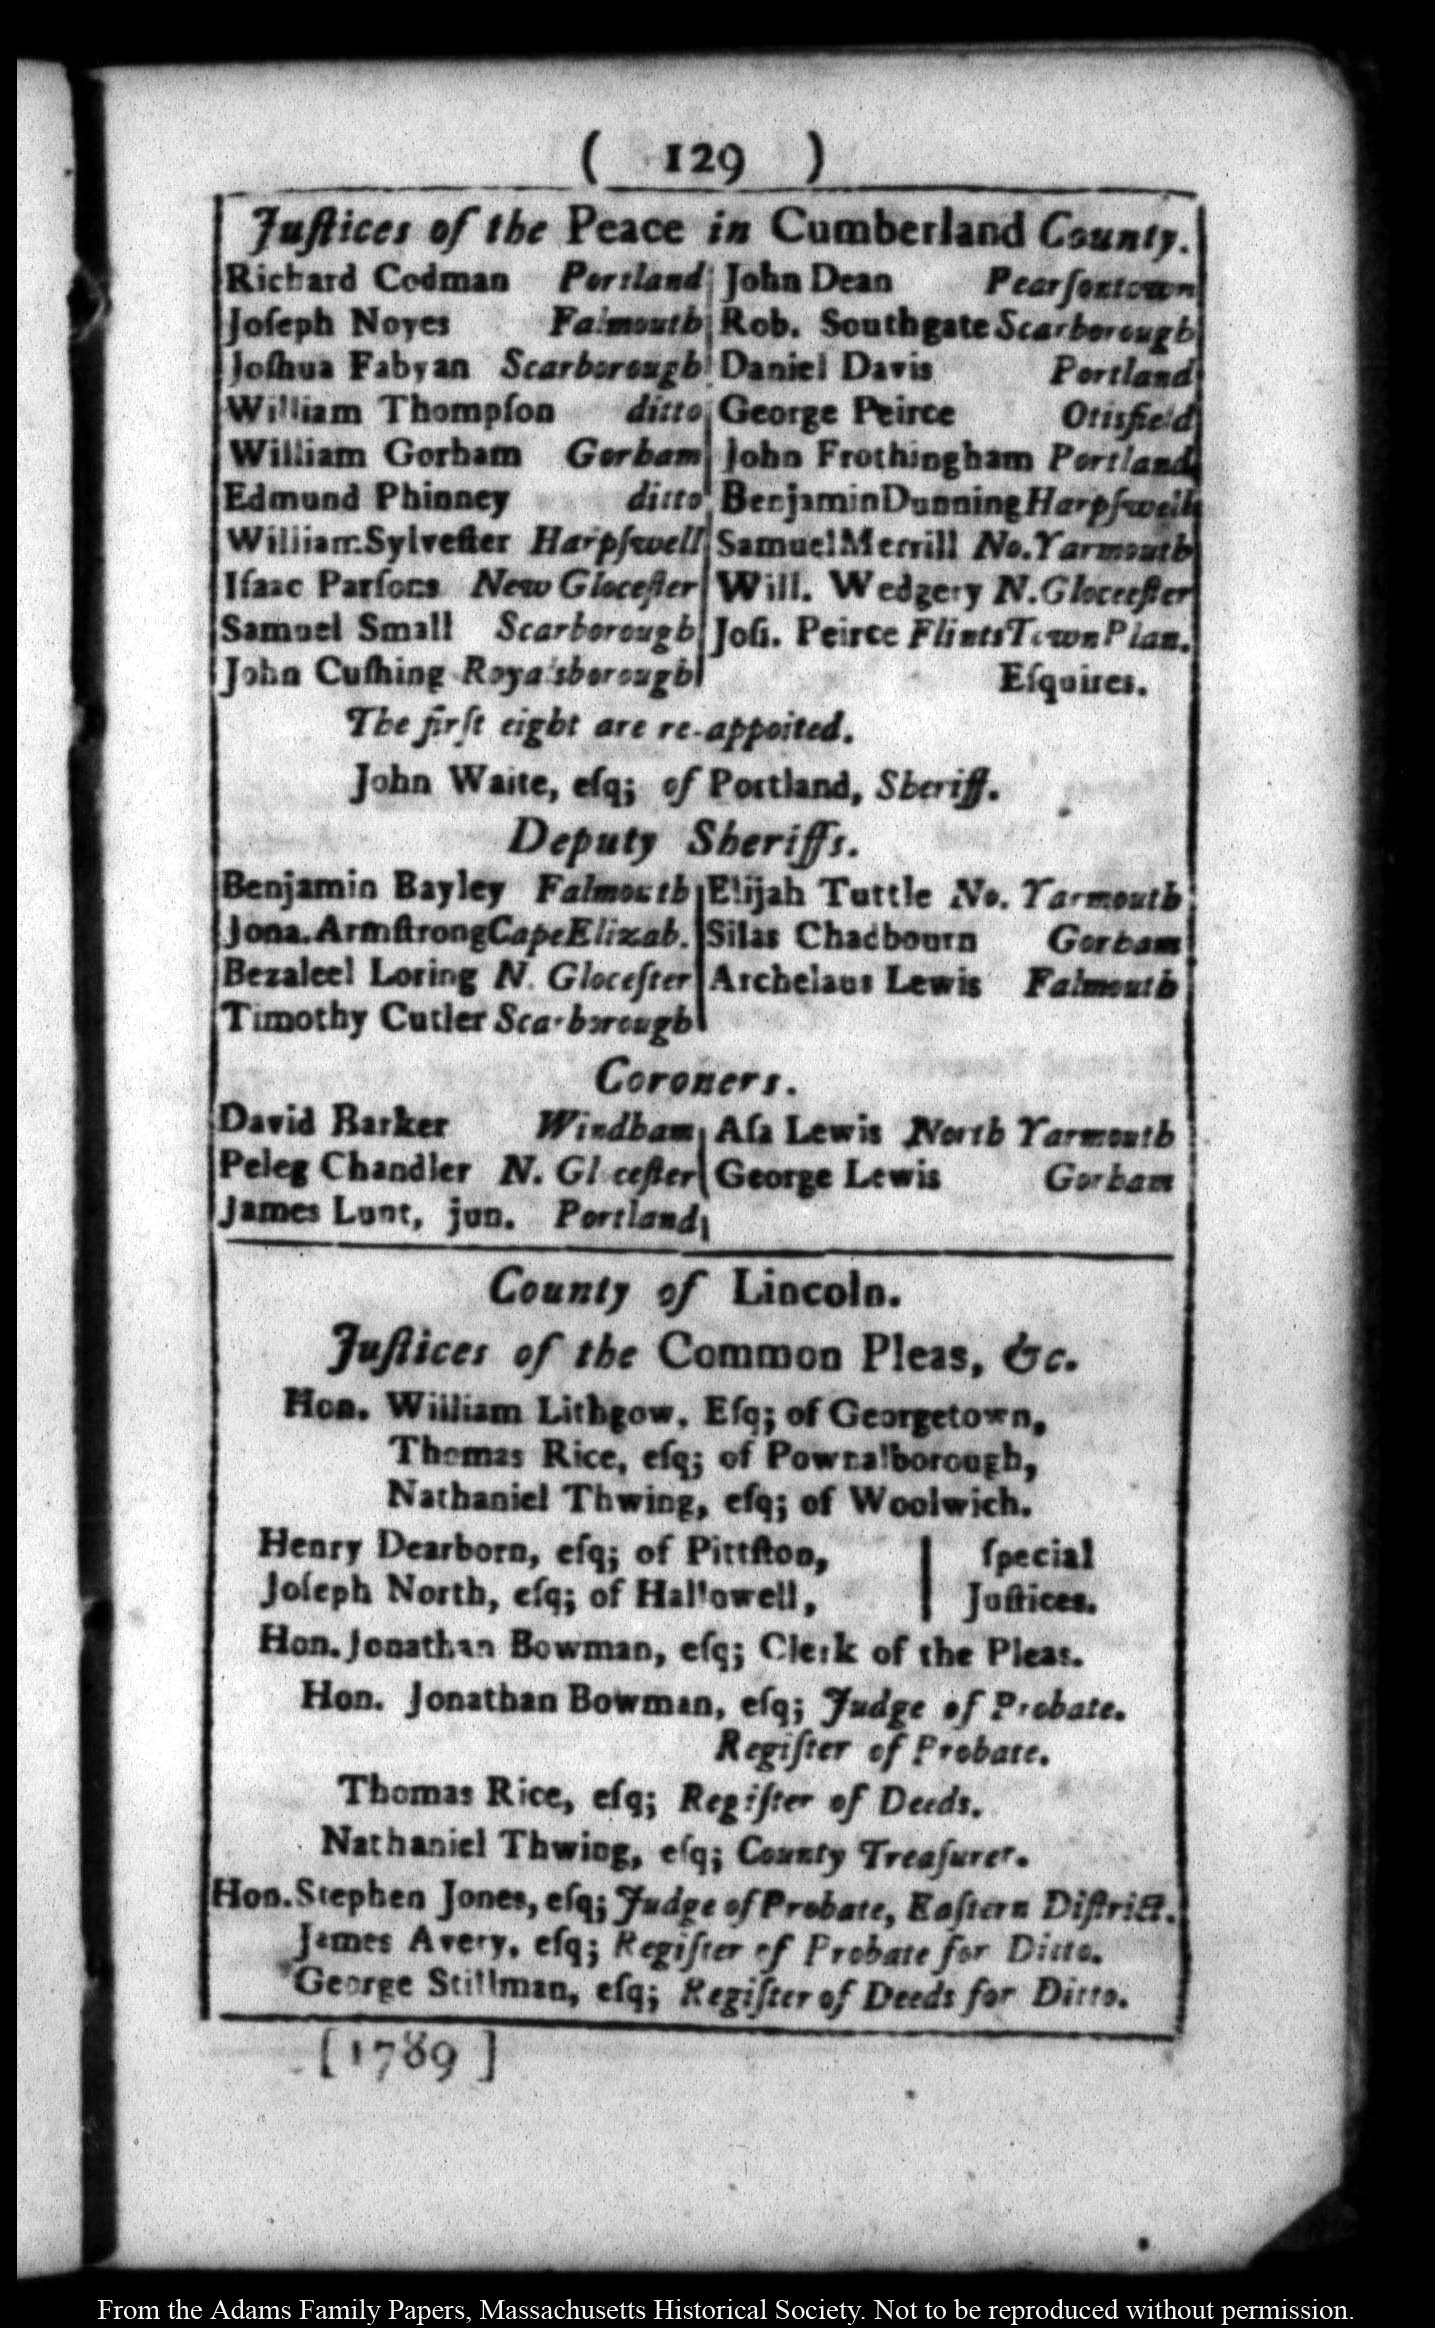 ( 129 )
Juſtices of the Peace in Cumberland County.
Richard Codman Portland
Joſeph Noyes Falmouth
Joſhua Fabyan Scarborough
William Thompſon ditto
William Gorham Gorham
Edmund Phinney ditto
William Sylveſter Harpſwell
Iſaac Parſons New Gloceſter
Samuel Small Scarborough
John Cuſhing Royalsborough
John Dean Pearſontown
Rob. Southgate Scarborough
Daniel Davis Portland
George Peirce Otisfield
John Frothingham Portland
Benjamin Dunning Harpſwell
Samuel Merrill No. Yarmouth
Will. Wedgery N. Gloceeſter
Joſi. Peirce Flints Town Plan.
Eſquires.
The firſt eight are re-appoited.
John Waite, eſq; of Portland, Sheriff.
Deputy Sheriffs.
Benjamin Bayley Falmouth
Jona. Armſtrong Cape Elizab.
Bezaleel Loring N. Gloceſter
Timothy Cutler Scarborough
Elijah Tuttle No. Yarmouth
Silas Chadbourn Gorham
Archelaus Lewis Falmouth
Coroners.
David Barker Windham
Peleg Chandler N. Gloceſter
James Lunt, jun. Portland
Aſa Lewis North Yarmouth
George Lewis Gorham
County of Lincoln.
Juſtices of the Common Pleas, &c.
Hon. William Lithgow. Eſq; of Georgetown,
Thomas Rice, eſq; of Pownalborough,
Nathaniel Thwing, eſq; of Woolwich.
Henry Dearborn, eſq; of Pittſton, | ſpecial
Joſeph North, eſq; of Hallowell, | Juſtices.
Hon. Jonathan Bowman, eſq; Clerk of the Pleas.
Hon. Jonathan Bowman, eſq; Judge of Probate.
Regiſter of Probate.
Thomas Rice, eſq; Regiſter of Deeds.
Nathaniel Thwing, eſq; County Treaſurer.
Hon. Stephen Jones, eſq; Judge of Probate, Eaſtern Diſtrict.
James Avery, eſq; Regiſter of Probate for Ditto.
George Stillman, eſq; Regiſter of Deeds for Ditto.
[ 1789 ]
From the Adams Family Papers, Massachusetts Historical Society. Not to be reproduced without permission.